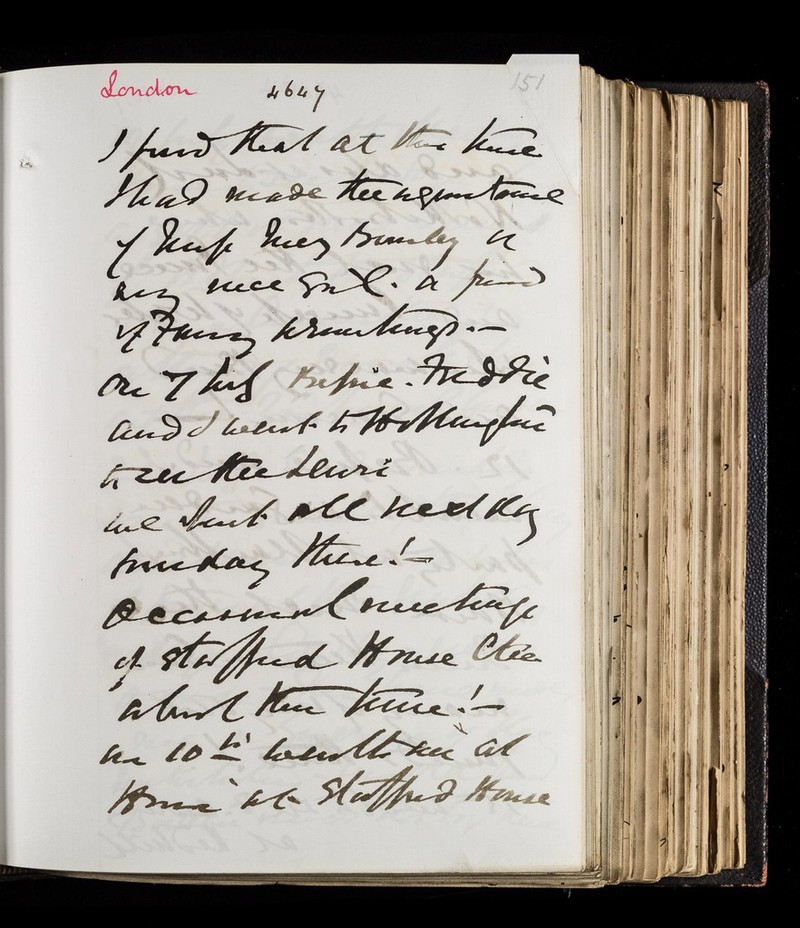 London 4647 151
I find that at this time
I had made the acquaintance
of Miss May a
very nice Girl. a friend
of Fanny Armitages.—
On 7th Freddie
and I went to
to see the Lewis
we spent all next day
Sunday there!—
Occasional meetings
of Stafford House Ctee
about this time!—
on 10th went to an at
Home at Stafford House